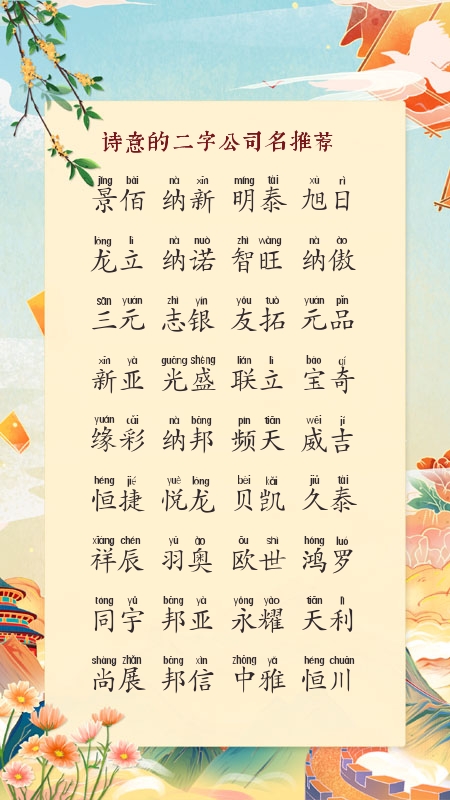 诗意的二字公司名推荐
jǐng bǎi nà xīn míng tài xù rì
景佰 纳新 明泰 旭日
lóng lì nà nuò zhì wàng nà ào
龙立 纳诺 智旺 纳傲
sān yuán zhì yín yǒu tuò yuán pǐn
三元 志银 友拓 元品
xīn yà guāng shèng lián lì bǎo qí
新亚 光盛 联立 宝奇
yuán cǎi nà bāng pín tiān wēi jí
缘彩 纳邦 频天 威吉
héng jié yuè lóng bèi kǎi jiǔ tài
恒捷 悦龙 贝凯 久泰
xiáng chén yǔ ào ōu shì hóng luó
祥辰 羽奥 欧世 鸿罗
tóng yǔ bāng yà yǒng yào tiān lì
同宇 邦亚 永耀 天利
shàng zhǎn bāng xìn zhōng yǎ héng chuān
尚展 邦信 中雅 恒川